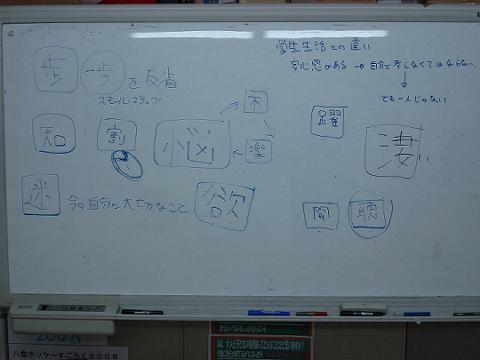 歩 一歩 を反省
スモールステップ
知 割 悩 不
楽
迷 今の自分に大切なこと 欲
学生生活との違い
安心感がある → 自分で考えなくてはならない
でも一人じゃない
躍 凄い
聞 聴
2008
八雲ホッケーすごろく2008